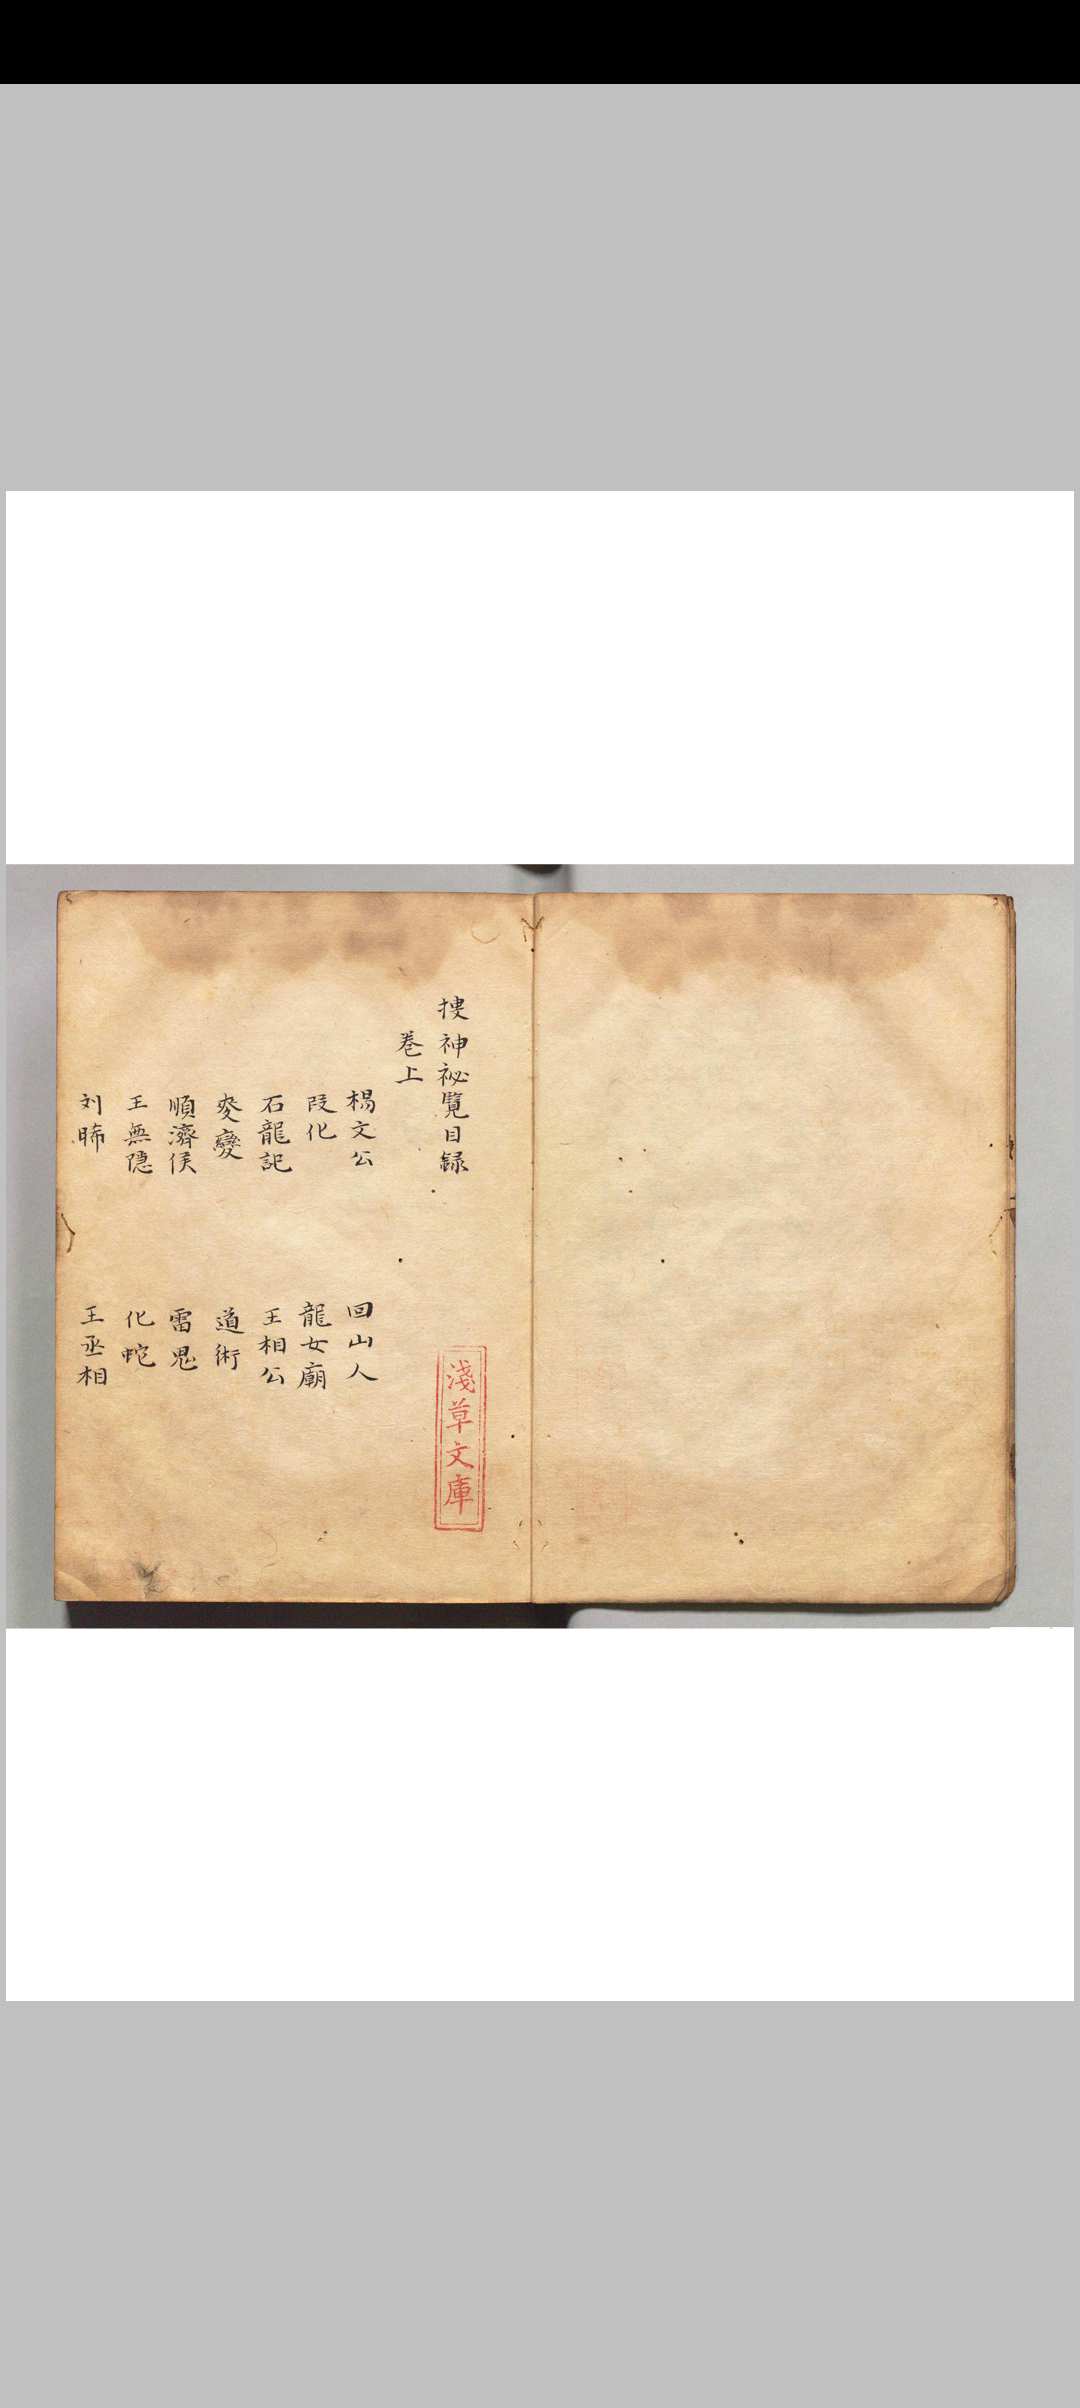 搜神祕覽目錄
卷上
楊文公 回山人
段化 龍女廟
石龍記 王相公
麥變 道術
順濟侯 雷鬼
王無隱 化蛇
刘晞 王丞相
淺草文庫